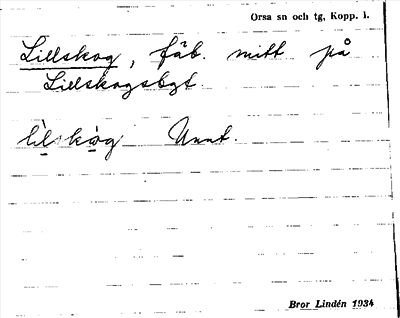 Orsa sn och tg, Kopp. l.
Lillskog, fäb. mitt på
Lillskogsbgt.
Unnt.
Bror Lindén 1934